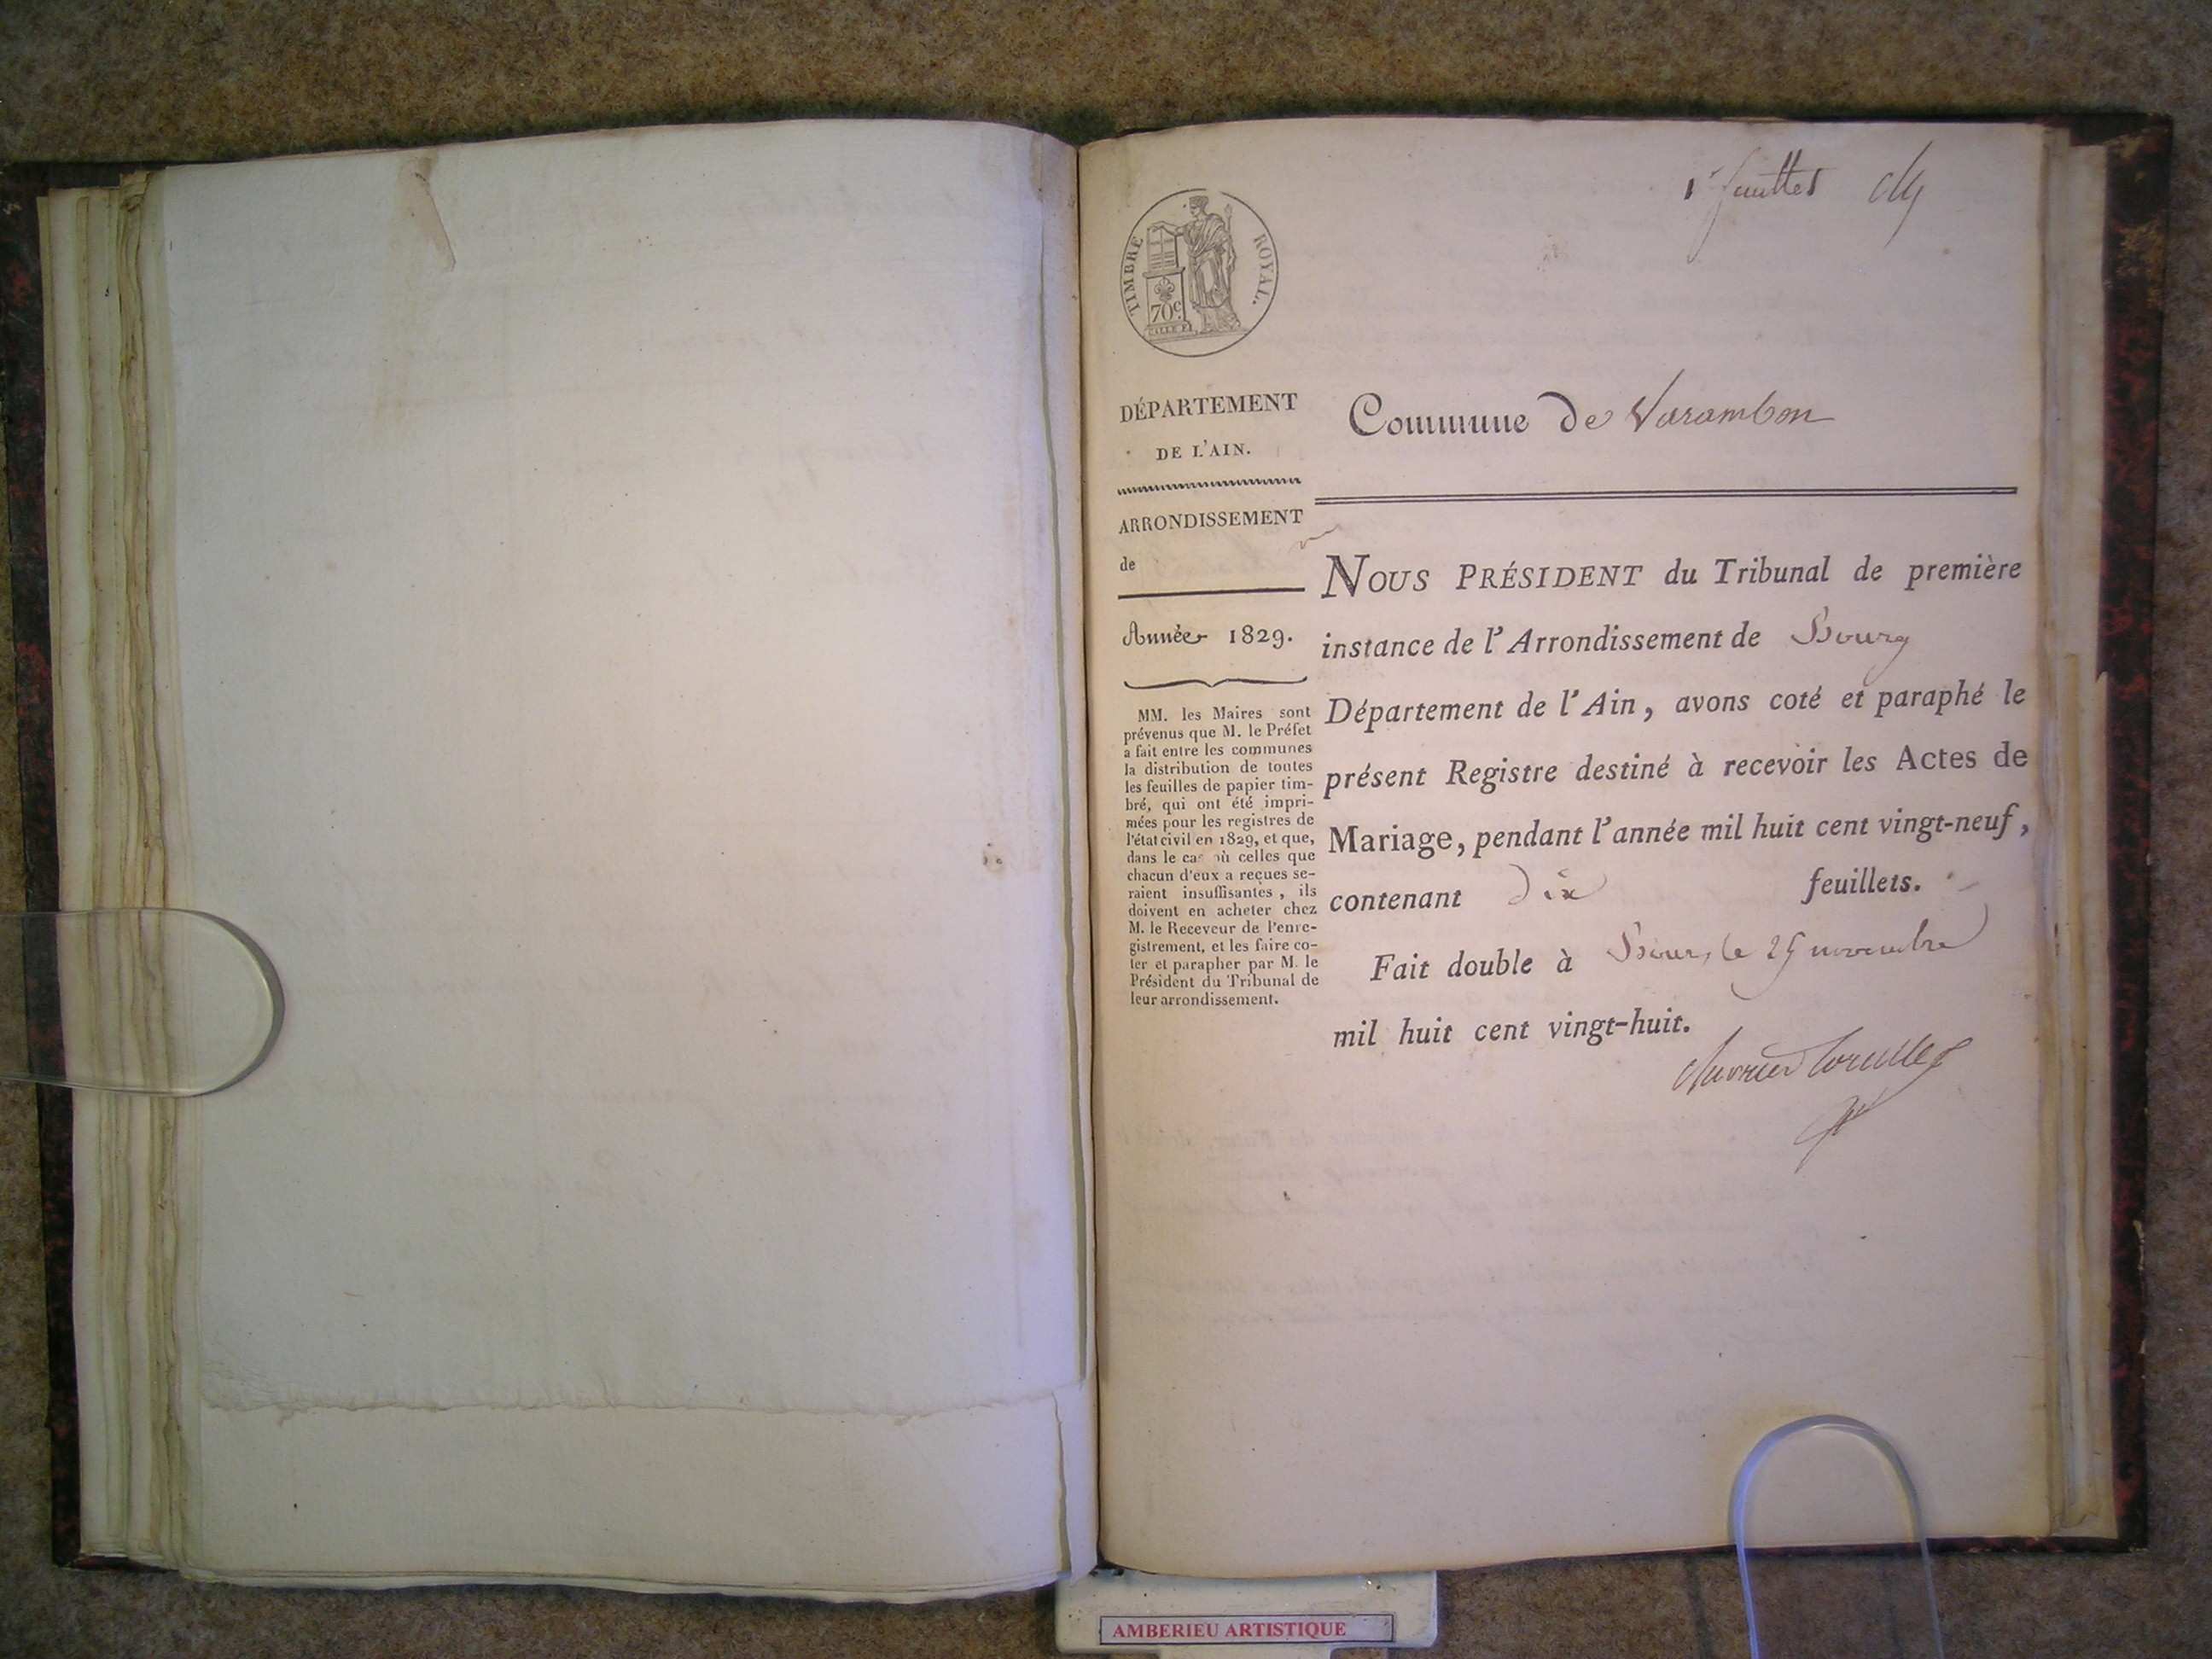 1er feuillet
TIMBRE ROYAL.
70c.
DÉPARTEMENT
DE L'AIN.
ARRONDISSEMENT
de
Année 1829.
MM. les Maires sont
prévenus que M. le Préfet
a fait entre les communes
la distribution de toutes
les feuilles de papier tim-
bré, qui ont été impri-
mées pour les registres de
l'état civil en 1829, et que,
dans le cas où celles que
chacun d'eux a reçues se-
raient insuffisantes, ils
doivent en acheter chez
M. le Receveur de l'enre-
gistrement, et les faire co-
ter et parapher par M. le
Président du Tribunal de
leur arrondissement.
Commune de Varambon
NOUS PRÉSIDENT du Tribunal de première
instance de l'Arrondissement de Bourg
Département de l'Ain, avons coté et paraphé le
présent Registre destiné à recevoir les Actes de
Mariage, pendant l'année mil huit cent vingt-neuf,
contenant dix feuillets.
Fait double à Bourg, le 25 novembre
mil huit cent vingt-huit.
AMBERIEU ARTISTIQUE